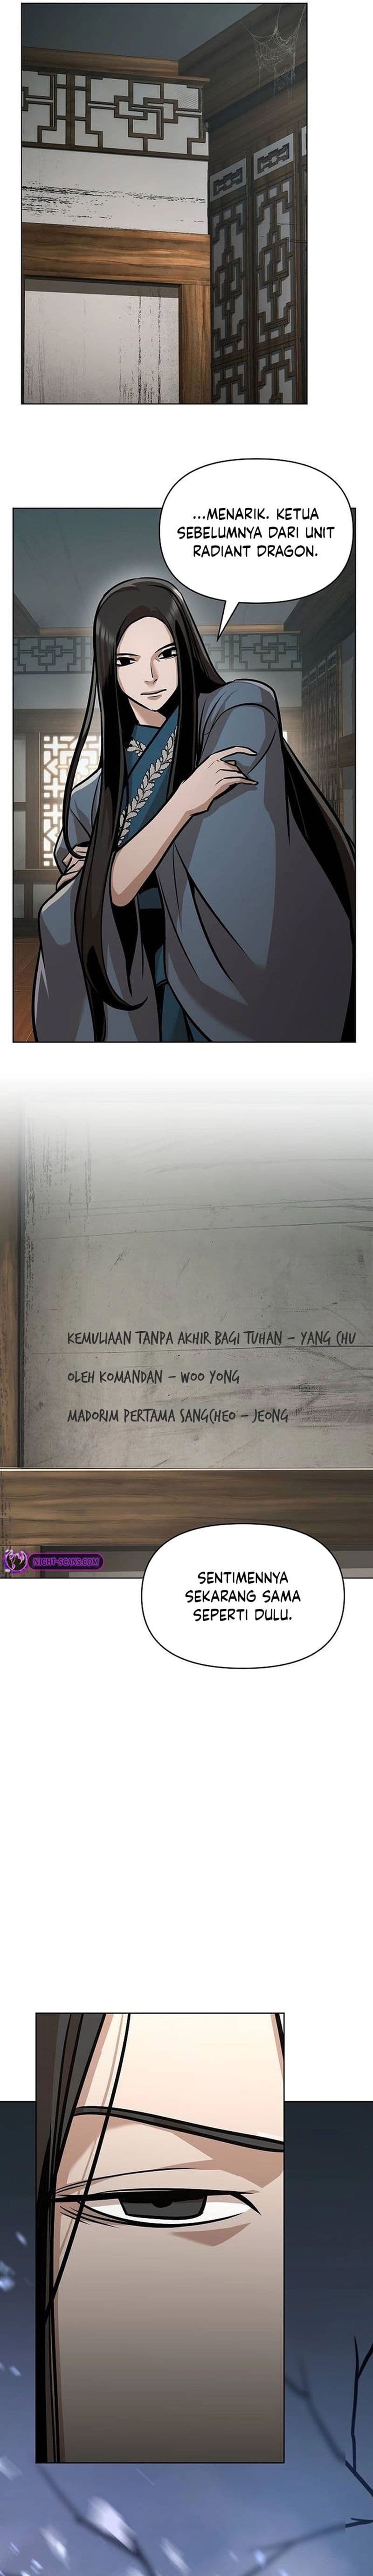 ...MENARIK. KETUA
SEBELUMNYA DARI UNIT
RADIANT DRAGON.
KEMULIAAN TANPA AKHIR BAGI TUHAN – YANG CHU
OLEH KOMANDAN – WOO YONG
MADORIM PERTAMA SANGCHEO – JEONG
NIGHT-SCANS.COM
SENTIMENNYA
SEKARANG SAMA
SEPERTI DULU.